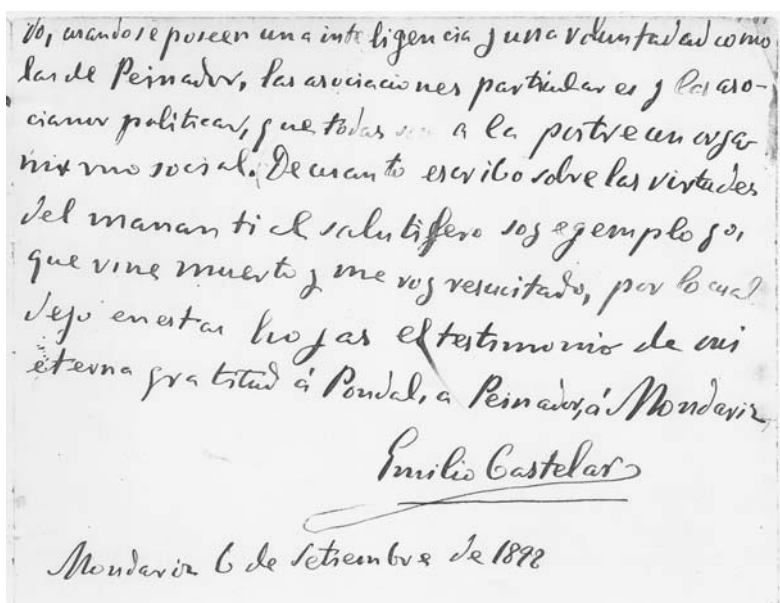 do, cuando se poseen una inteligencia y una voluntad como
las de Peinador, las asociaciones particulares y las aso-
cianos políticas, que todas son a la postre un orga-
nismo social. De cuanto escribo sobre las virtudes
del manantial salutífero soy egemplo yo,
que vine muerto y me voy resucitado, por lo cual
dejo en estas hojas el testimonio de mi
eterna gratitud á Pondal, a Peinador, á Mondariz
Emilio Castelar
Mondariz 6 de Setiembre de 1892